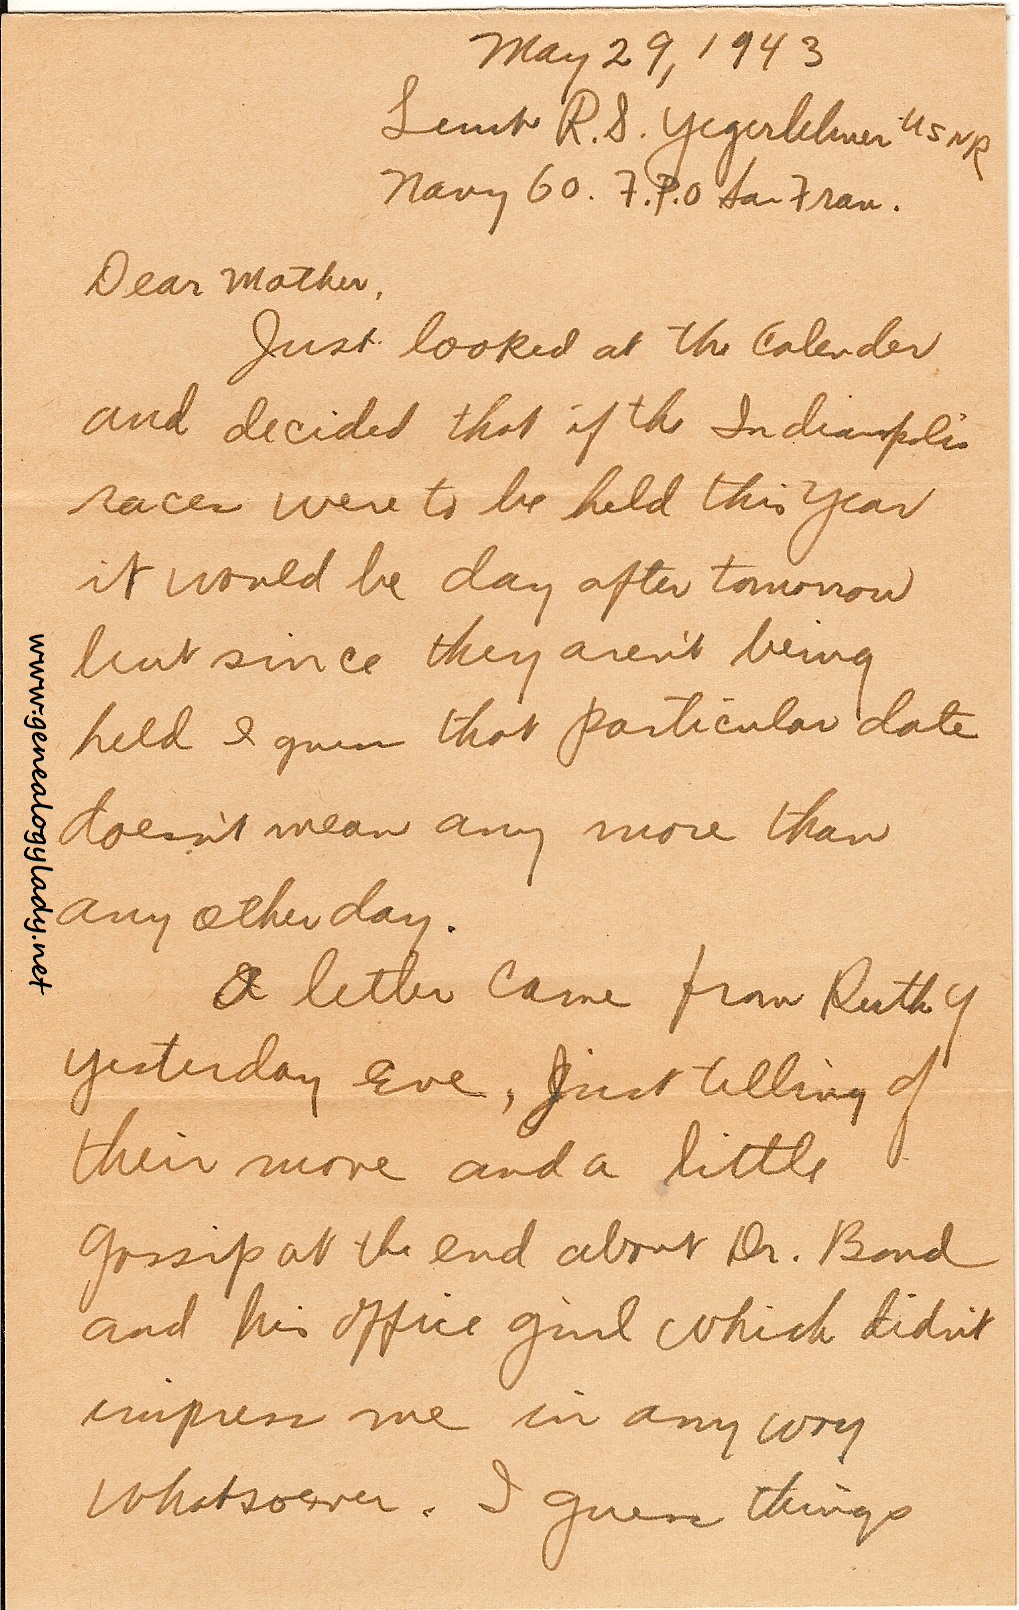 May 29, 1943
Lieut R.S. Yegerlehner USNR
Navy 60. F.P.O San Fran.
Dear Mother,
Just looked at the Calender
and decided that if the Indianapolis
races were to be held this year
it would be day after tomorrow
but since they aren't being
held I guess that particular date
doesn't mean any more than
any other day.
A letter came from Ruth Y
yesterday eve, Just telling of
their move and a little
gossip at the end about Dr. Bond
and his office girl which didn't
impress me in any way
whatsoever. I guess things
www.genealogylady.net